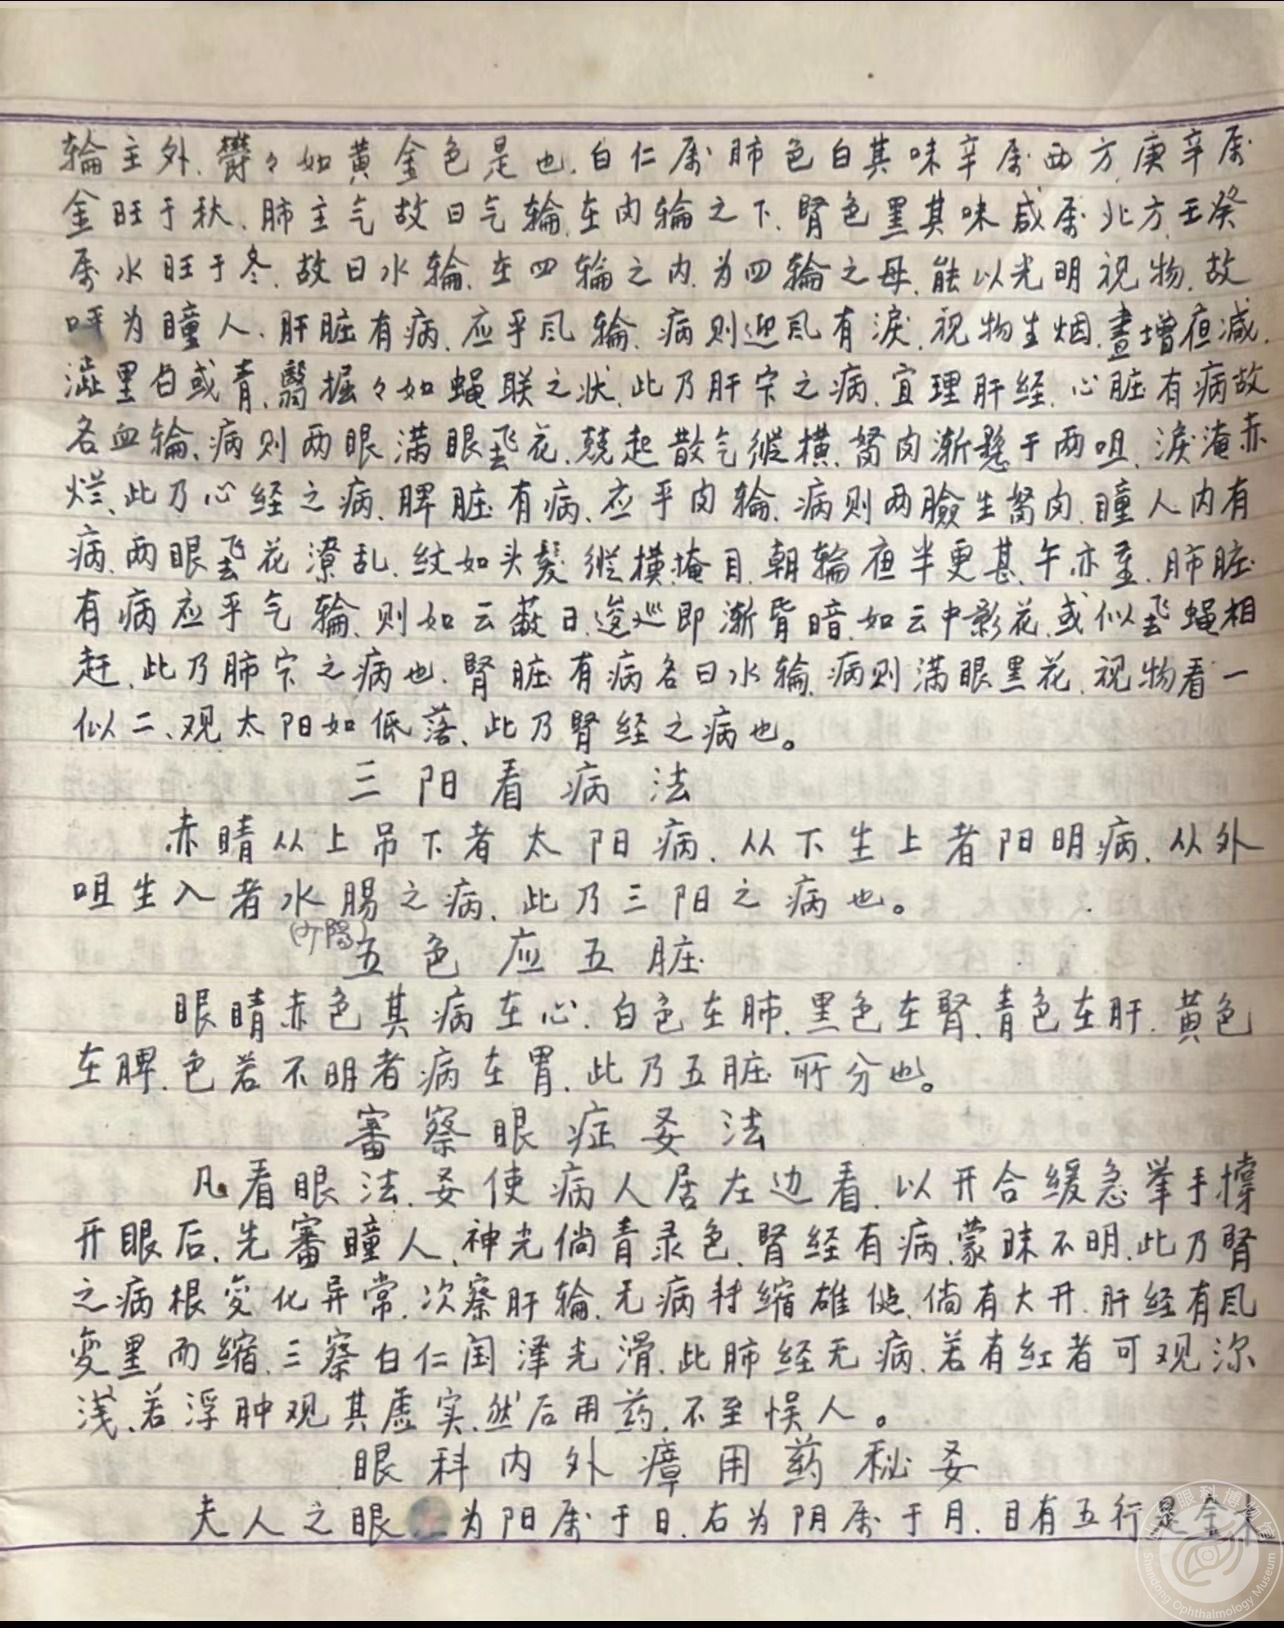 轮主外、欝々如黄金色是也.白仁属肺色白其味辛属西方庚辛属
金旺于秋、肺主气故曰气轮.在肉轮之下.肾色黑其味咸属北方壬癸
属水旺于冬.故曰水轮.在四轮之内.为四轮之母.能以光明视物.故
呼为瞳人.肝脏有病.应乎风轮.病则迎风有淚.视物生烟.晝增夜减.
澁里白或青.翳掘々如蝇联之状.此乃肝家之病.宜理肝经.心脏有病故
名血轮、病则两眼满眼飞花.競起散气縱横.胬肉渐懸于两咀.淚淹赤
烂、此乃心经之病.脾脏有病、应乎肉轮.病则两臉生胬肉.瞳人内有
病.两眼飞花潦乱.纹如头髮縱横掩目.朝輪夜半更甚.午亦重.肺脏
有病应乎气轮.则如云蔽日.逡巡即渐昏暗.如云中影花.或似飞蝇相
赶.此乃肺家之病也.肾脏有病名曰水轮.病则满眼黑花.视物看一
似二、观太阳如低落、此乃肾经之病也。
三阳看病法
赤睛从上吊下者太阳病.从下生上者阳明病.从外
咀生入者水腸之病.此乃三阳之病也。
五色应五脏
眼睛赤色其病在心.白色在肺.黑色在肾.青色在肝.黄色
在脾.色若不明者病在胃.此乃五脏所分也。
審察眼症要法
凡看眼法.要使病人居左边看.以开合缓急举手撑
开眼后.先審瞳人.神光倘青录色.肾经有病.蒙昧不明.此乃肾
之病根变化异常.次察肝轮.无病 缩雄健.倘有大开.肝经有风
变里而缩.三察白仁闰泽光滑.此肺经无病.若有红者可观深
浅、若浮肿观其虚实.然后用药.不至悮人。
眼科内外瘴用药秘要
夫人之眼 为阳属于日.右为阴属于月.目有五行是金木
Shandong Ophthalmology Museum